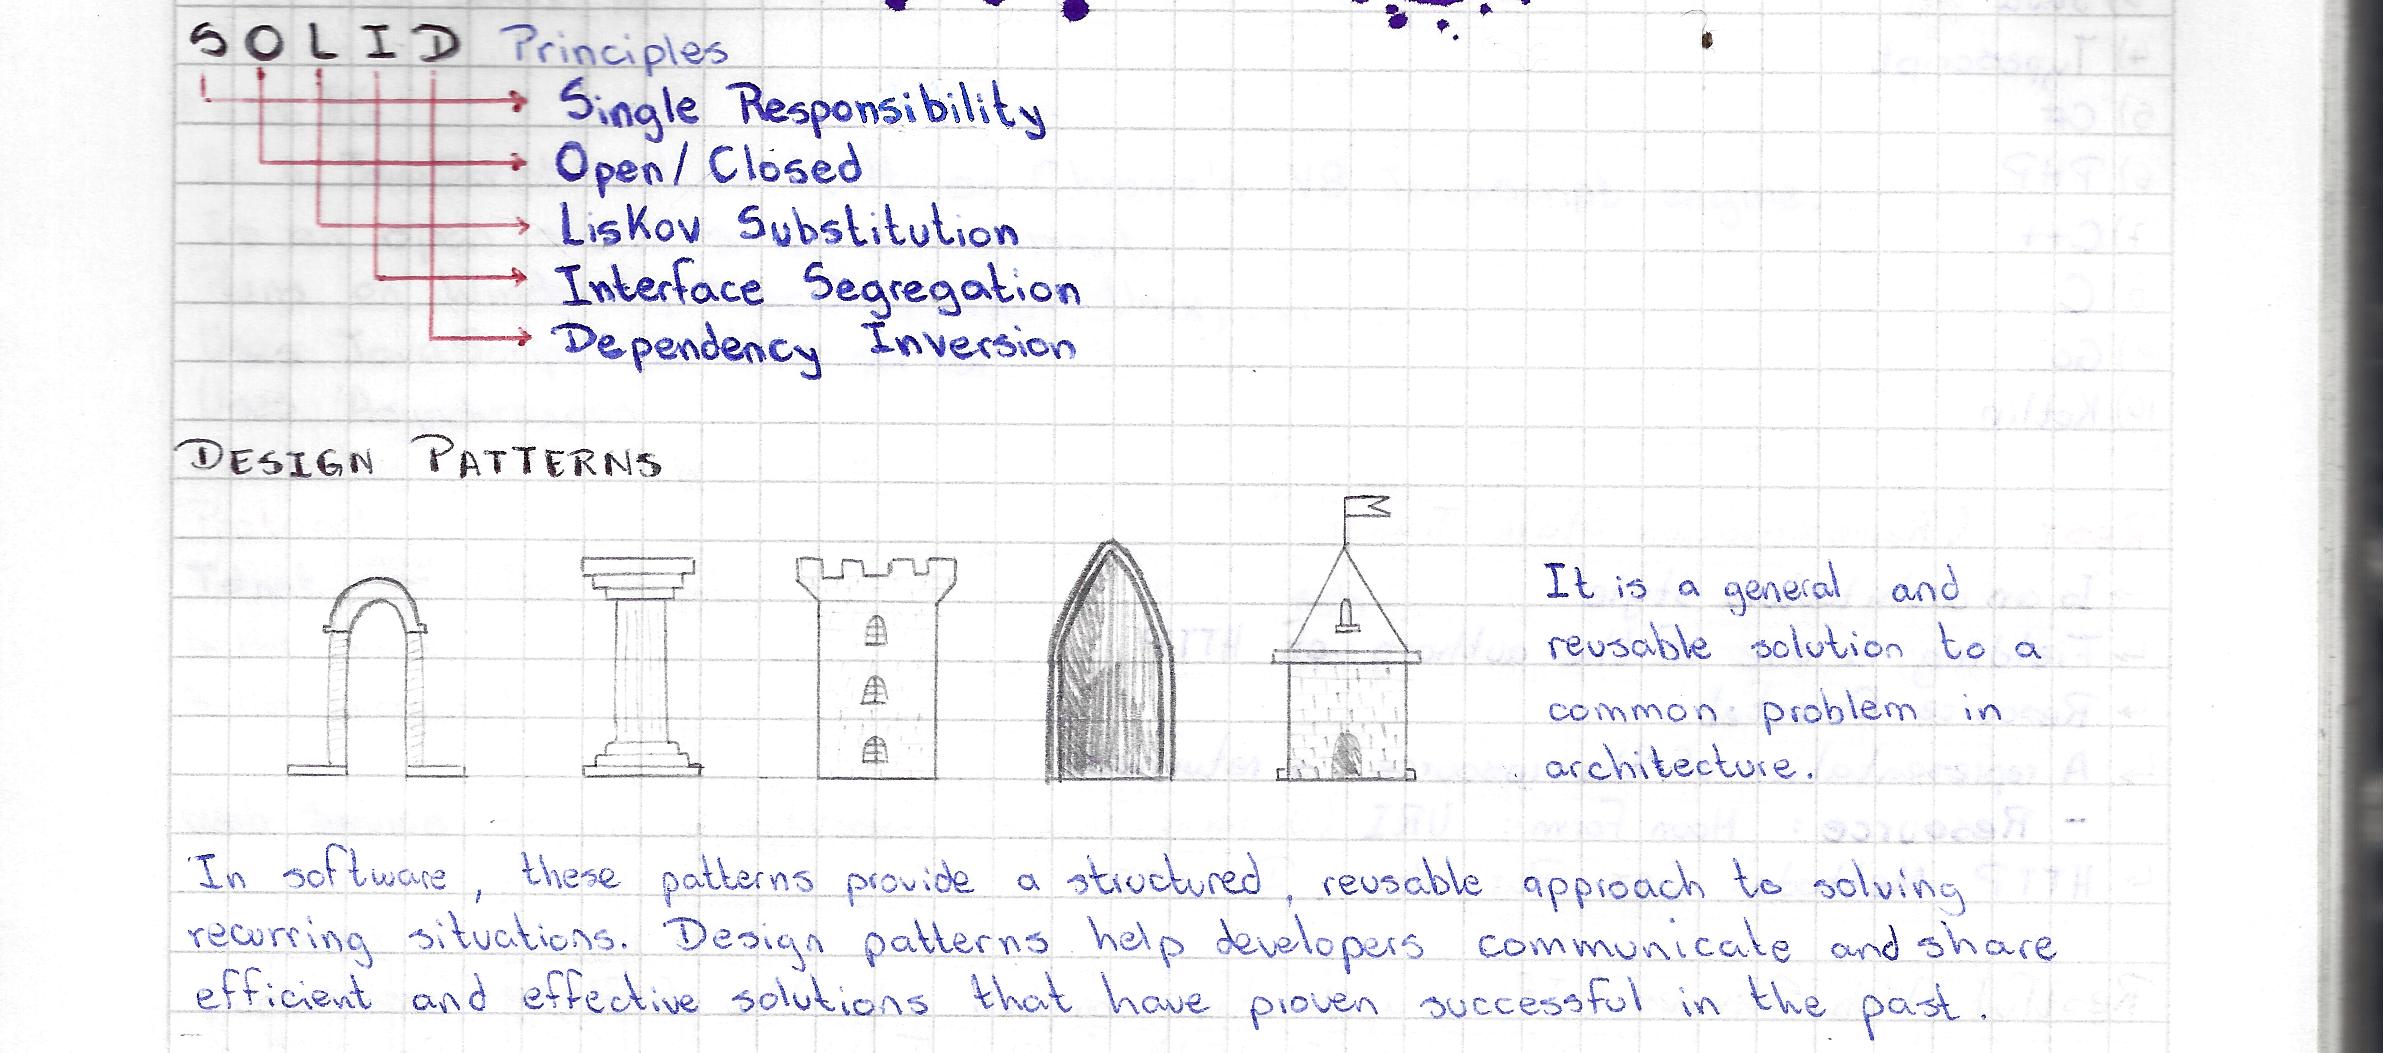 SOLID Principles
Single Responsibility
Open/Closed
Liskov Substitution
Interface Segregation
Dependency Inversion
DESIGN PATTERNS
It is a general and
reusable solution to a
common problem in
architecture.
In software, these patterns provide a structured, reusable approach to solving
recurring situations. Design patterns help developers communicate and share
efficient and effective solutions that have proven successful in the past.